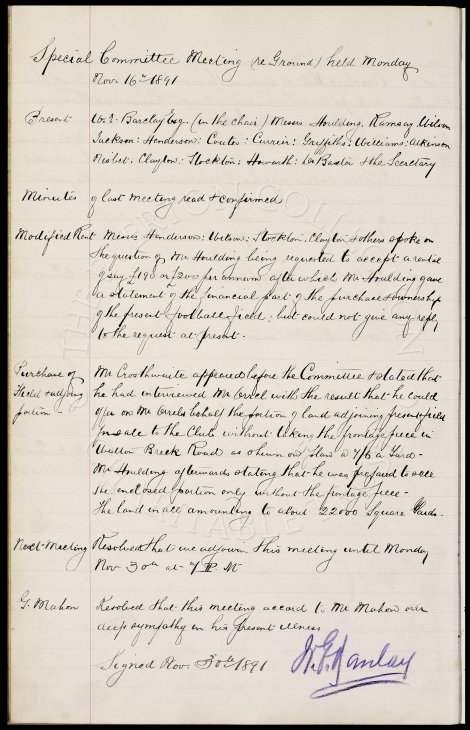 Special Committee Meeting (re Ground) held Monday
Nov 16th 1891
Present W. E. Barclay Esq (in the chair) Messrs Houlding, Ramsay Wilson
Jackson: Henderson: Coates: Currier: Griffiths: Williams: Atkinson
Nisbet, Clayton: Stockton: Howarth: Dr Baxter & the Secretary
Minutes of last meeting read & confirmed
Modified Rent Messrs Henderson: Wilson: Stockton, Clayton & others spoke on
the question of Mr Houlding being requested to accept a rental
of say £190 or £200 per annum after which Mr Houlding gave
a statement of the financial part of the purchase & ownership
of the present football field; but could not give any reply
to the request at present.
Purchase of Mr Crosthwaite appeared before the Committee & stated that
Field & adjng he had interviewed Mr Orrel with the result that he could
portion offer on Mr Orrels behalf the portion of land adjoining present field
for sale to the Club without taking the frontage piece in
Walton Breck Road as shewn on Plan a 7/6 a Yard -
Mr Houlding afterwards stating that he was prepared to
the enclosed portion only without the frontage piece -
The land in all amounting to about 22000 Square Yards.
Next Meeting Resolved that we adjourn this meeting until Monday
Nov 30th at 7 P.M
G. Mahon Resolved that this meeting accord to Mr Mahon our
deep sympathy in his present illness
Signed Nov. 30th 1891